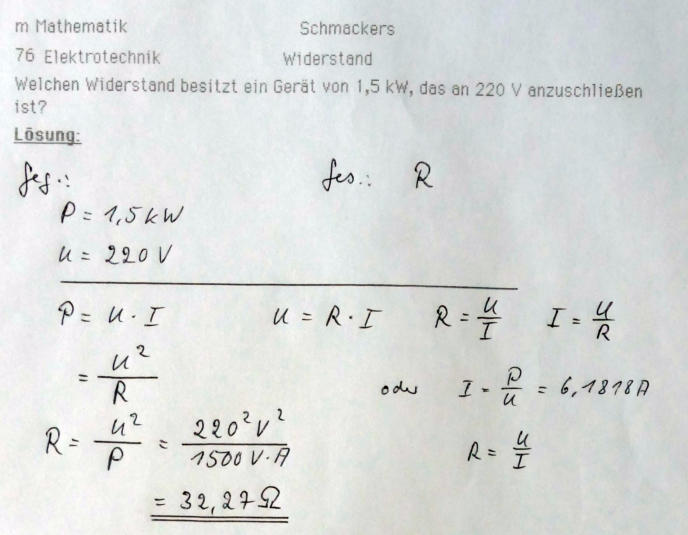 m Mathematik Schmackers
76 Elektrotechnik Widerstand
Welchen Widerstand besitzt ein Gerät von 1,5 kW, das an 220 V anzuschließen
ist?
Lösung:
geg.: ges.: R
P = 1,5 kW
U = 220 V
P = U · I U = R · I R = U/I I = U/R
= U²/R oder I = P/U = 6,1818 A
R = U²/P = 220² V²/1500 V·A R = U/I
= 32,27 Ω